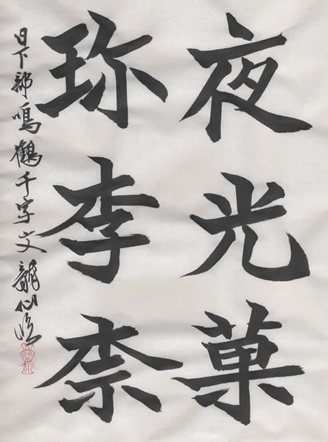 夜光菓
珍李柰
日下部鳴鶴千字文龍仙臨